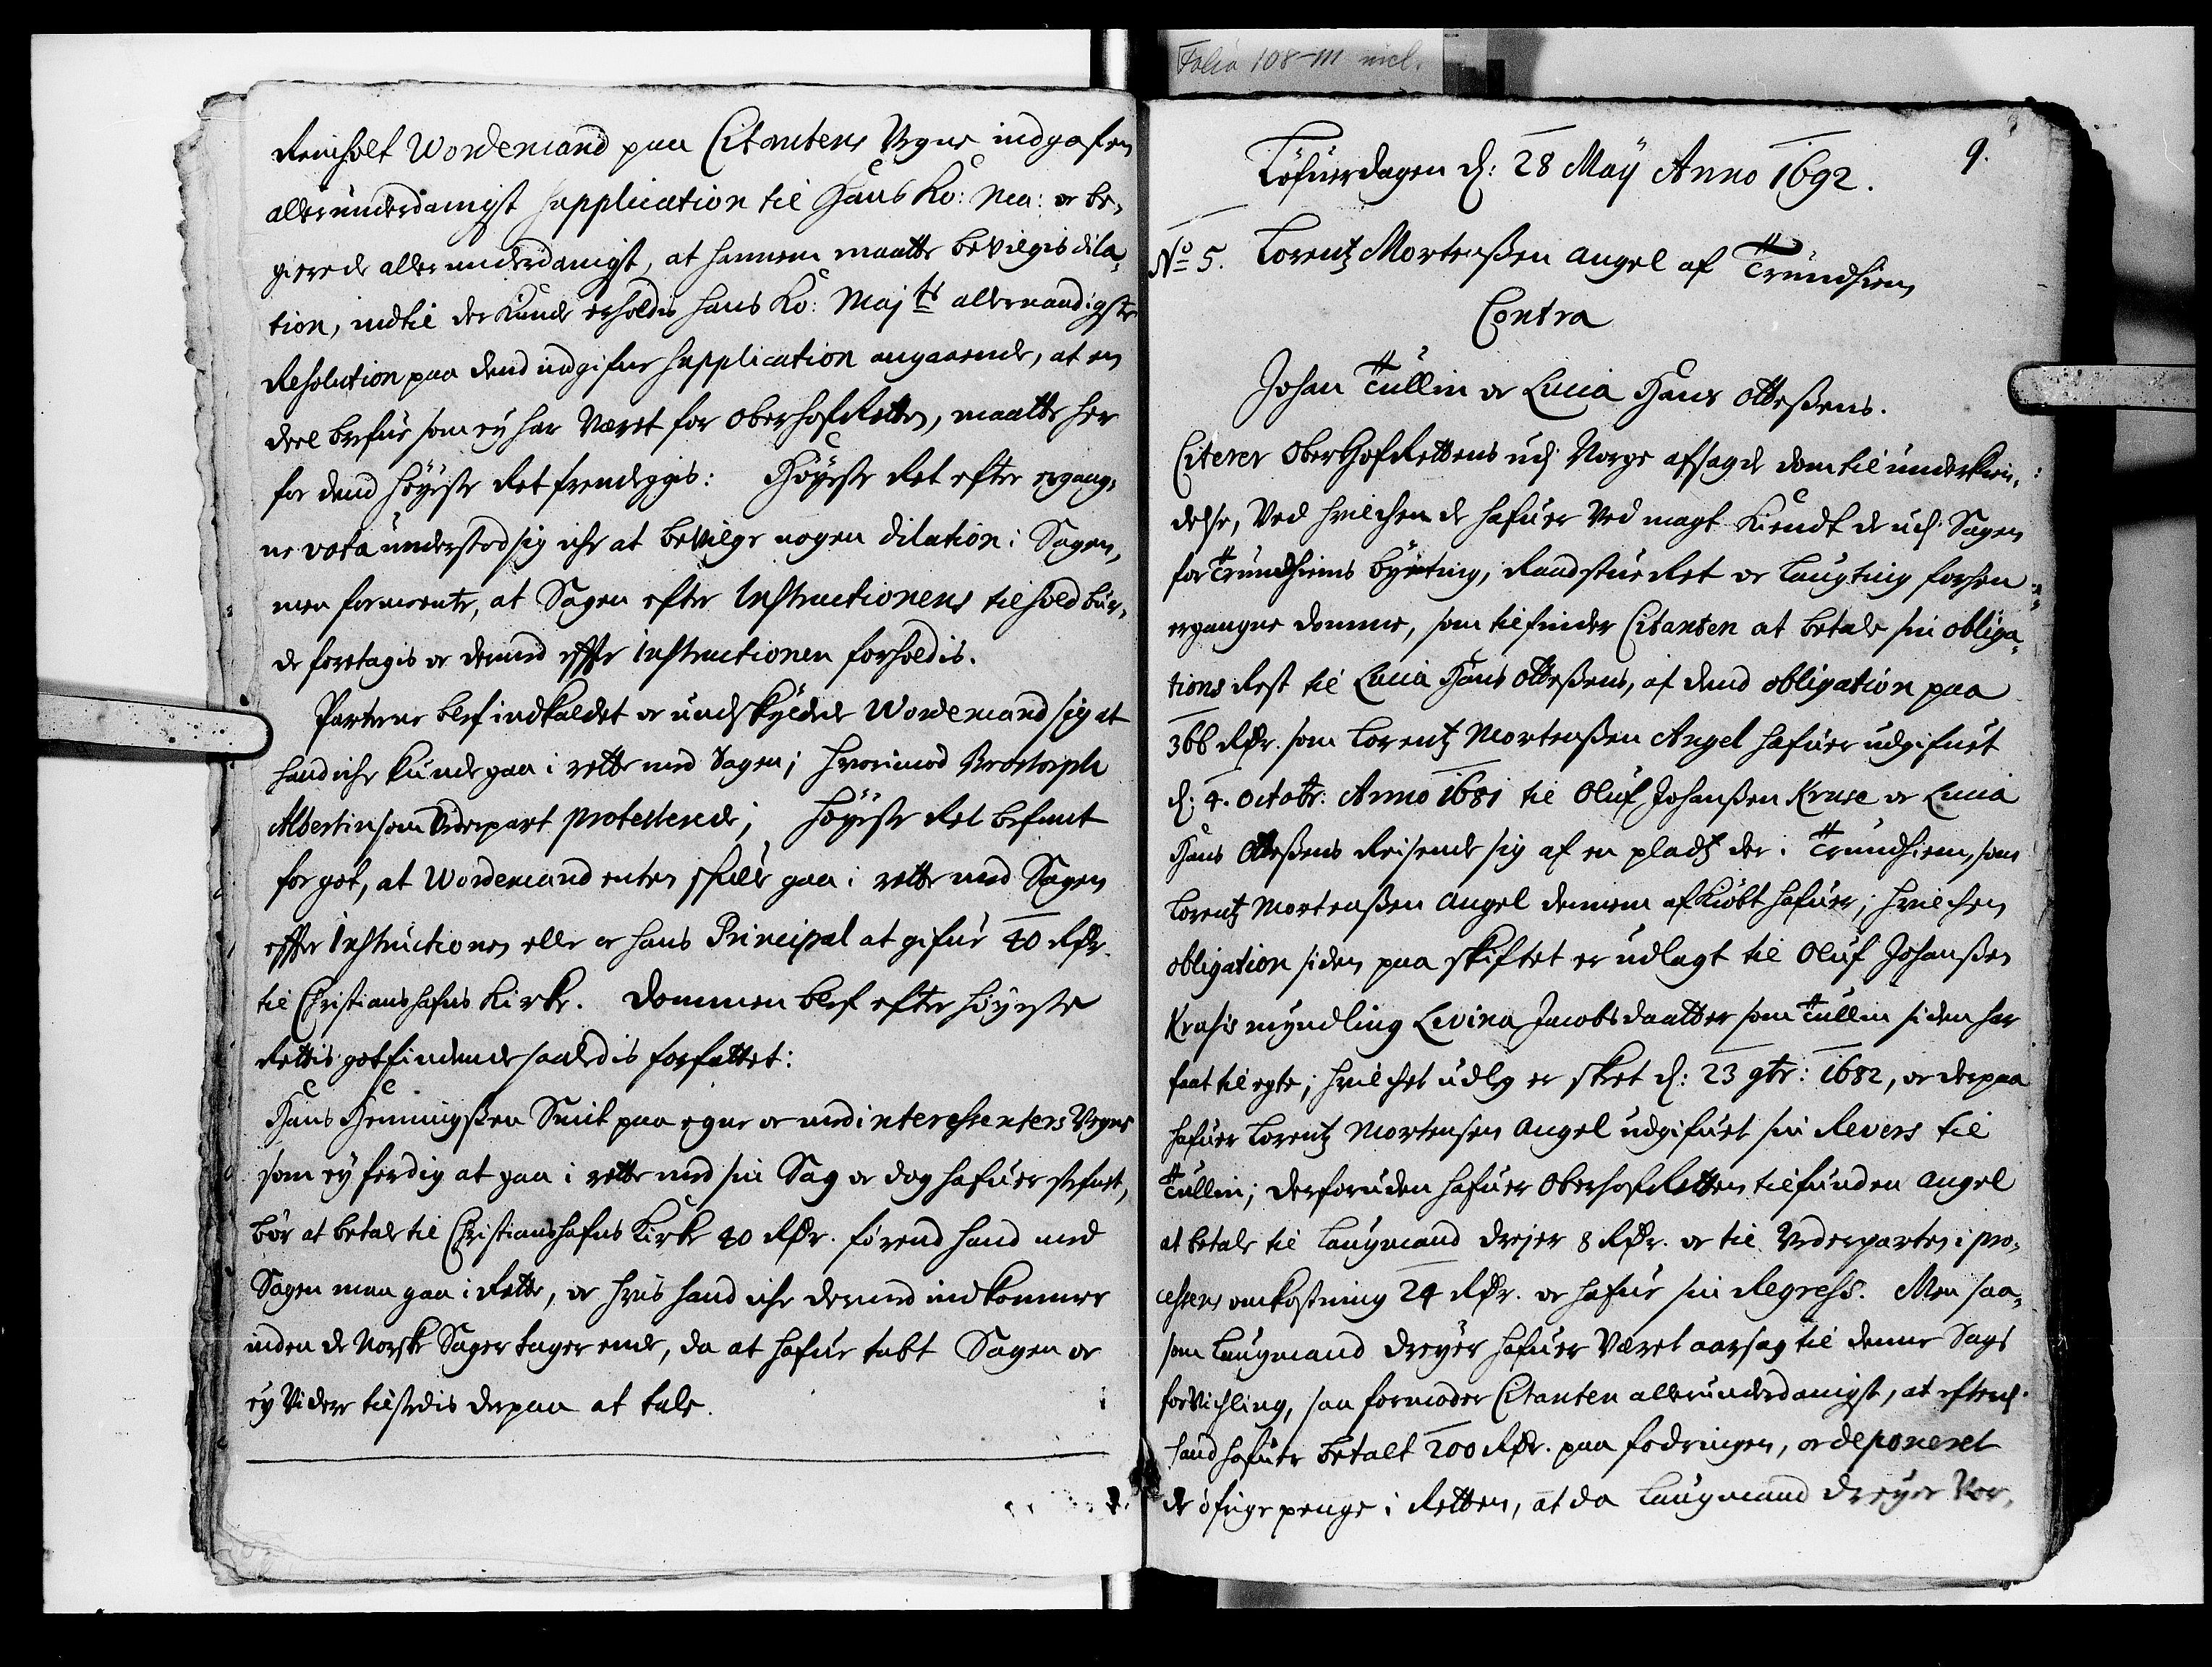 Folio 108-111 incl.
Reinholt Wordemand paa Citantens Vegne indgafen
allerunderdanigst supplication til Hans Ko: Ma: oc be-
gierede allerunderdanigst, at hannem maatte bevilgis dila-
tion, indtil der kunde erholdis hans Ko: Majts allernaadigste
Resolution paa dend indgifne supplication angaaende, at en
deel brefue som ey har Været for Oberhofretten, maatte her
for dend høyeste Ret fremleggis: Høyeste Ret efter ergang-
ne vota understod sig iche at bevilge nogen dilation i Sagen,
men formeente, at Sagen efter Instructionens tilhold bur-
de foretagis oc dermed effter Instructionen forholdis.
Parterne blef indkaldet oc undskyldede Wordemand sig at
hand iche kunde gaa i rette med Sagen; hvorimod
Albertin som Vederpart protesterede; Høyeste Ret befant
for got, at Wordemand enten skulle gaa i rette med Sagen
effter Instructionen eller oc hans Principal at gifue 40 Rdr.
til Christianshafns Kirke. Dommen blef efter høyeste
Rettis gotfindende saaledis forfattet:
Hans Henningsßen Smit paa egne oc medinteressenters Vegne
som ey ferdig at gaa i rette med sin Sag oc dog hafuer stefnet,
bør at betale til Christianshafns Kirke 40 Rdr. førend hand med
Sagen maa gaa i Rette, oc hvis hand iche dermed indkommer
inden de Norske Sager tager ende, da at hafue tabt Sagen oc
ey Videre tilstedis derpaa at tale.
9.
Løfuerdagen d: 28 Maÿ Anno 1692.
No 5. Lorentz Mortenßen Angel af Trundhiem
Contra
Johan Tullin oc Lucia Hans Otteßens.
Citerer OberHofRettens udj Norge afsagde dom til underkien-
delse, Ved hvilchen de hafuer Ved magt kiendt de udj Sagen
for Trundhiems byeting, Raadstue Ret oc Laugting forhen
ergangne domme, som tilfinder Citanten at betale sin obliga-
tions Rest til Lucia Hans Otteßens, af dend obligation paa
366 Rdr. som Lorentz Mortenßen Angel hafuer udgifuet
d: 4. Octobr: Anno 1681 til Oluf Johanßen Kruse oc Lucia
Hans Otteßens Reisende sig af en pladtz der i Trundhiem, som
Lorentz Mortenßen Angel dennem afkiøbt hafuer; hvilchen
obligation siden paa skiftet er udlagt til Oluf Johanßen
Krusis myndling Levina Jacobsdaatter som Tullin siden har
faat til egte; hvilchet udleg er skeet d: 23 9br: 1682, oc derpaa
hafuer Lorentz Mortensen Angel udgifuet sin Revers til
Tullin; derforuden hafuer Oberhofretten tilfunden Angel
at betale til Laugmand Drejer 8 Rdr. oc til Vederparten i pro-
cessens omkostning 24 Rdr. oc hafue sin Regress. Men saa-
som Laugmand Dreyer hafuer Været aarsag til denne Sags
forvichling, saa formoder Citanten allerunderdanigst, at efterdj
hand hafuer betalt 200 Rdr. paa fodringen, oc deponeret
de øfrige penge i Retten, at da Laugmand Dreyer Vor-